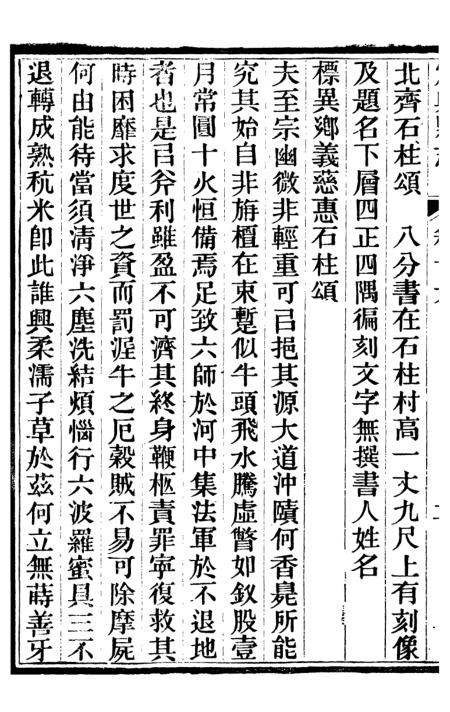 北齊石柱頌　八分書在石柱村高一丈九尺上有刻像
及題名下層四正四隅徧刻文字無撰書人姓名
標異鄉義慈惠石柱頌
夫至宗幽微非輕重可㠯挹其源大道沖賾何香臭所能
究其始自非旃檀在東蹔似牛頭飛水騰虛瞥如釵股壹
月常圓十火恒備焉足致六師於河中集法軍於不退地
者也是㠯斧利雖盈不可濟其終身鞭柩責罪寧復救其
時困靡求度世之資而罰渥牛之厄穀賊不易可除摩屍
何由能待當須清淨六塵洗結煩惱行六波羅蜜具三不
退轉成熟秔米卽此誰興柔濡子草於茲何立無蒔善牙